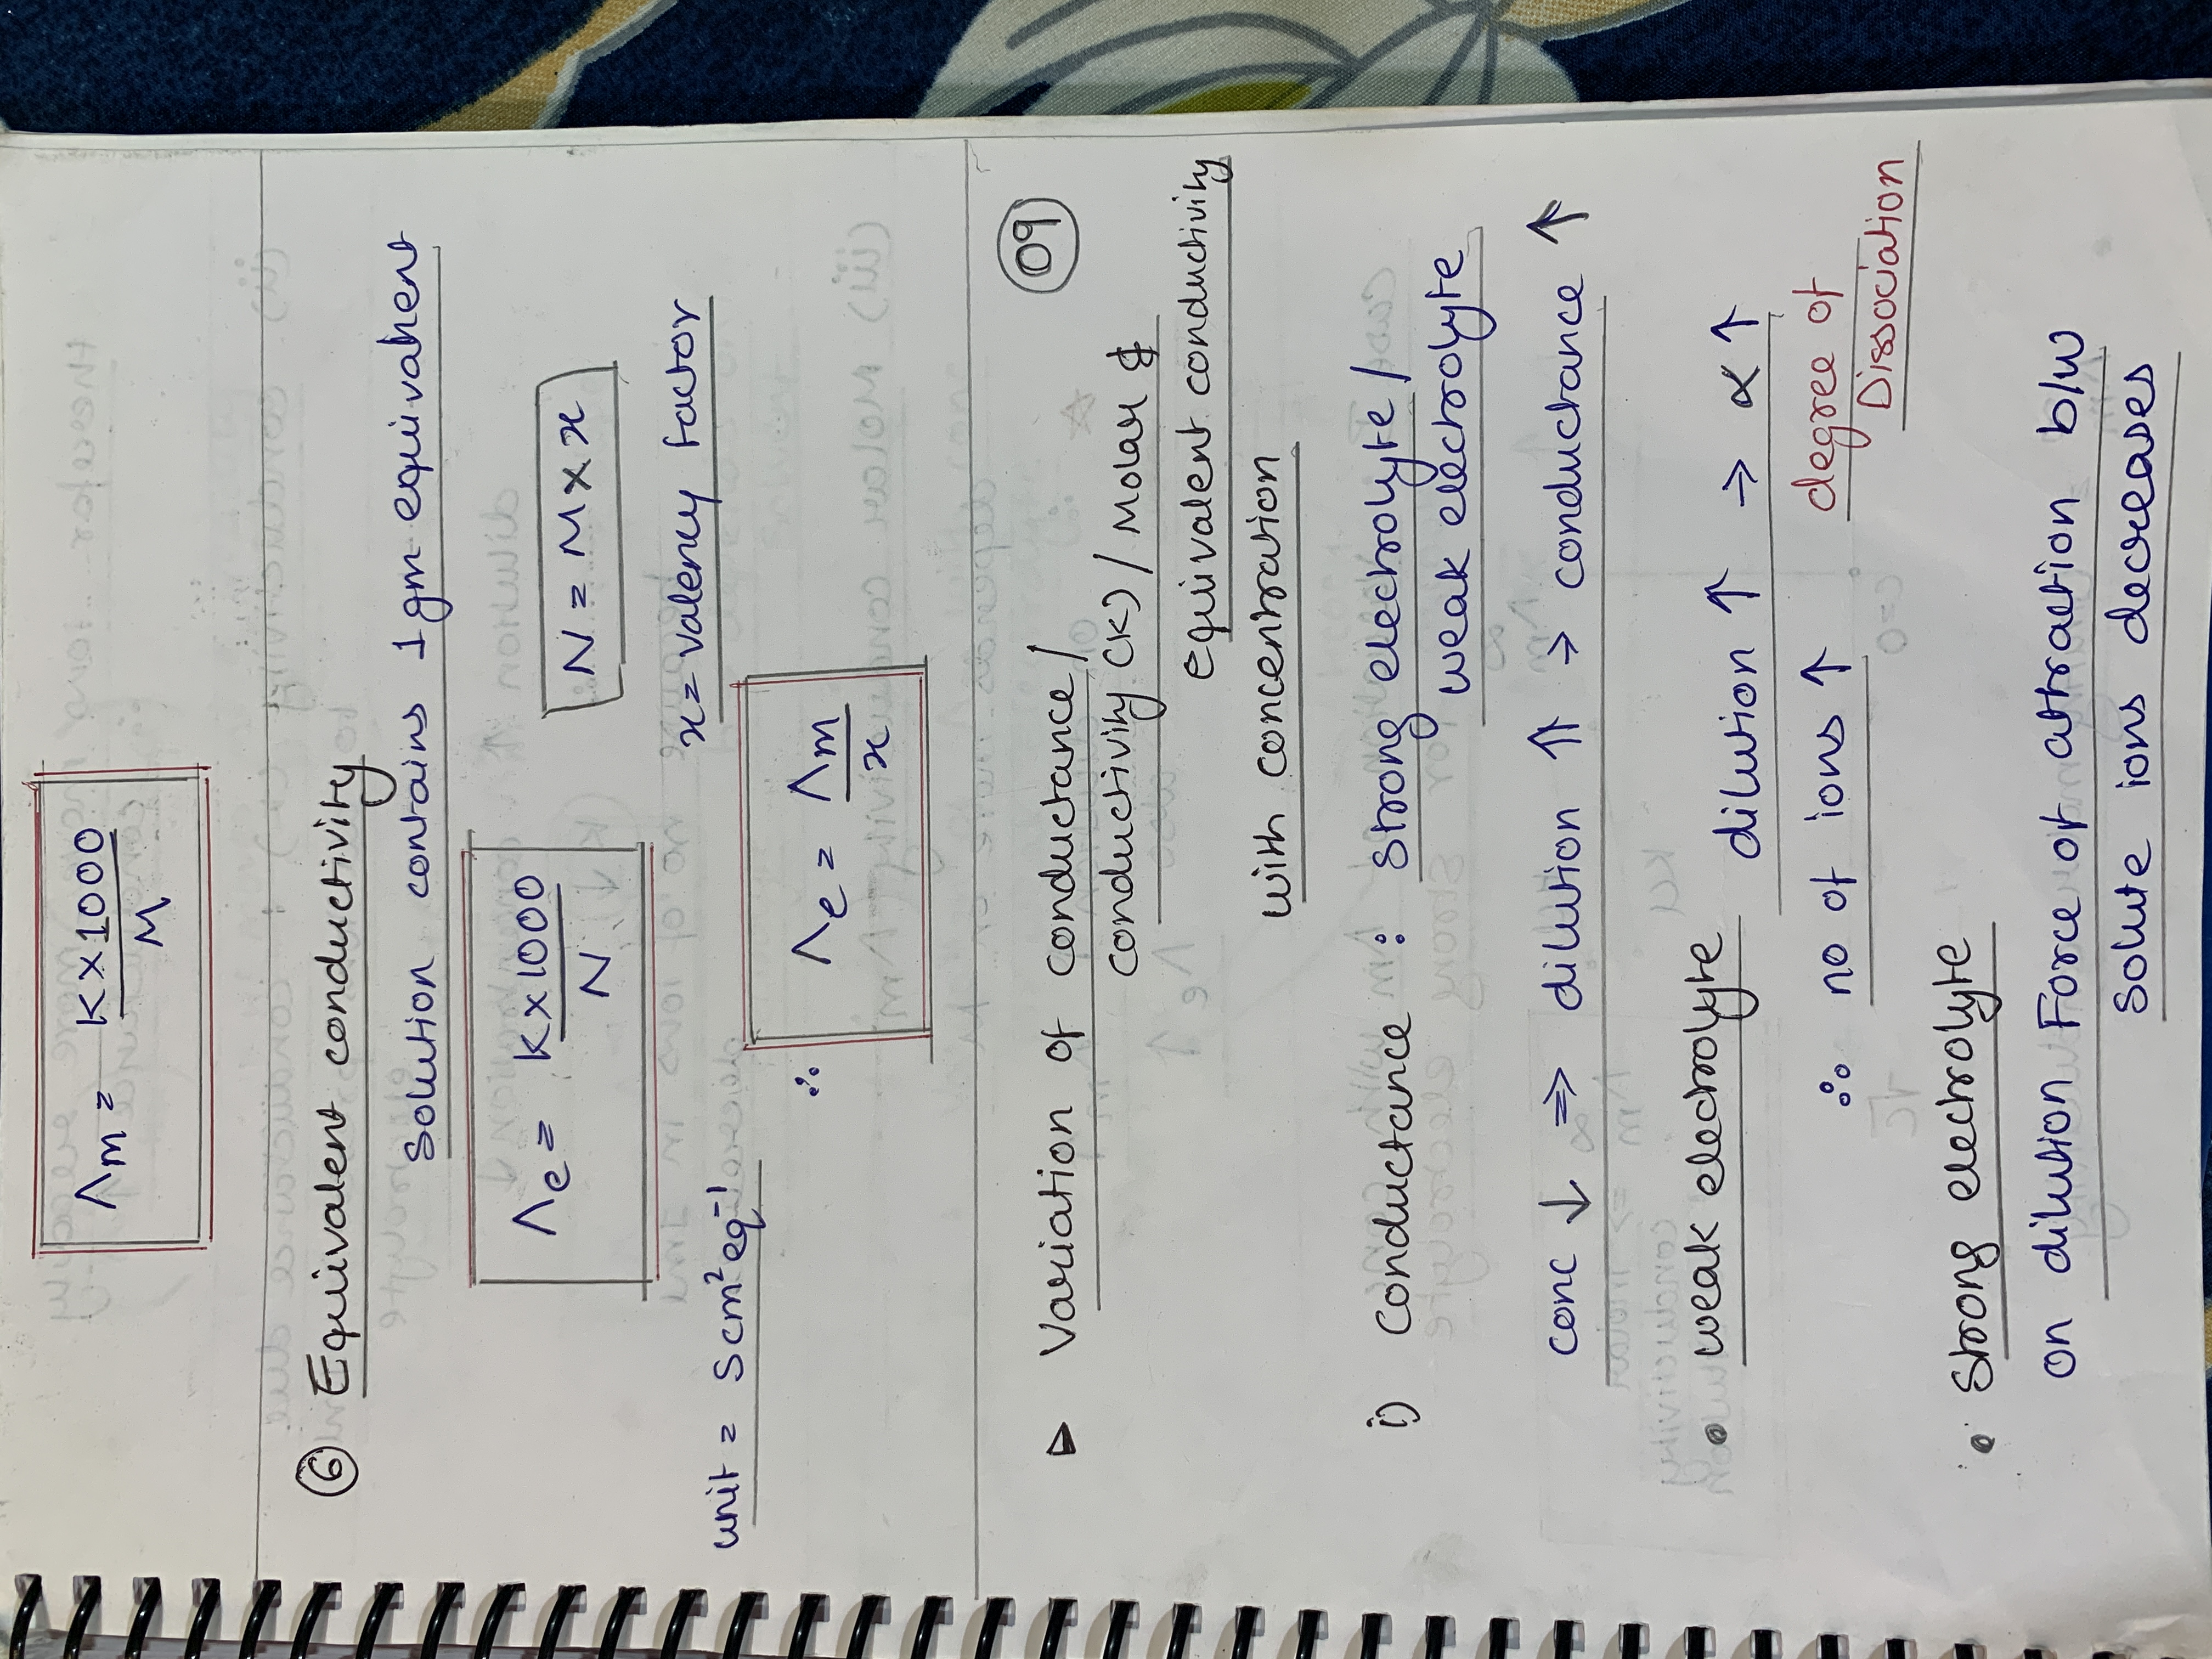 Λm = K×1000
M
⑥ Equivalent conductivity
Solution contains 1gm equivalent
Λe = K×1000
N
N = M × x
x = valency factor
unit = S cm² eq⁻¹
∴ Λe = Λm
x
09
▷ Variation of conductance/
conductivity (K) / Molar &
Equivalent conductivity
with concentration
i) Conductance : Strong electrolyte/
weak electrolyte
conc ↓ ⇒ dilution ⇑ → conductance ↑
• weak electrolyte
dilution ↑ → ∝ ↑
∴ no of ions ↑
degree of
Dissociation
• Strong electrolyte
on dilution Force of attraction b/w
solute ions decreases